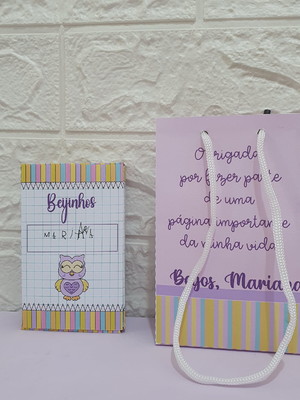 Beijinhos
Obrigada
por fazer parte
de uma
página importante
da minha vida.
Beijos, Mariana